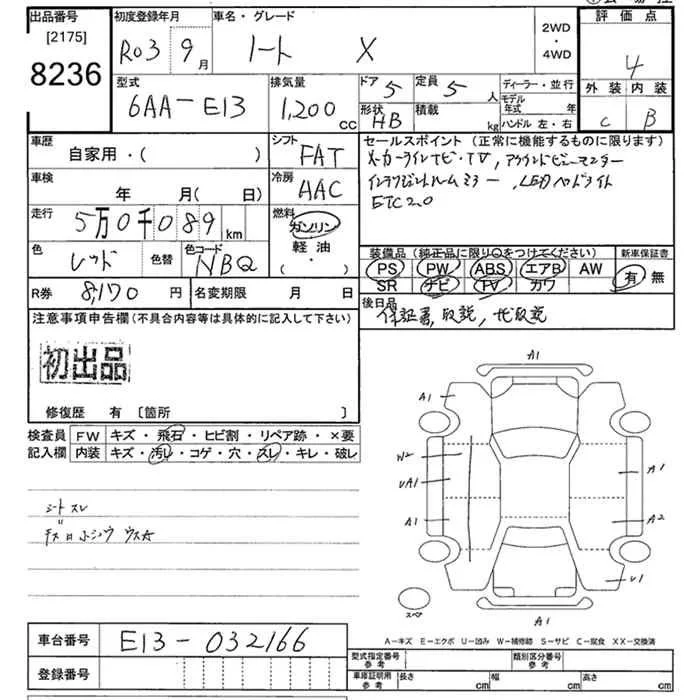 出品番号 初度登録年月 車名・グレード 2WD 評価点
[2175] R03 9月 ノート X ・ 4
8236 4WD
型式 排気量 ドア 5 定員 5 人 ディーラー・並行 外装 内装
6AA-E13 1,200 cc 形状 HB 積載 kg モデル年式 年 C B
ハンドル 左・右
車歴 シフト セールスポイント (正常に機能するものに限ります)
自家用・( ) FAT メーカーナビ・TV,アラウンドビューモニター
車検 冷房 インテリジェントルームミラー,LEDヘッドライト
年 月( 日) AAC ETC2.0
走行 燃料
5万0千089km ガソリン
軽油 装備品 (純正品に限り〇をつけてください) 新車保証書
色 レッド 色替 色コード NBQ ( ・ ) PS PW ABS エアB AW 有 無
SR ナビ TV カワ
R券 8,170円 名変期限 月 日 後日品
注意事項申告欄(不具合内容等は具体的に記入して下さい) 保証書,取説,ナビ取説
初出品
修復歴 有 [箇所 ]
検査員 FW キズ・飛石・ヒビ割・リペア跡・×要
記入欄 内装 キズ・汚レ・コゲ・穴・スレ・キレ・破レ
シートスレ
A1
A1
W2
UA1
A1
A1
A2
U1
スペア
A1
A-キズ E-エクボ U-凹み W-補修跡 S-サビ C-腐食 XX-交換済
車台番号 E13-032166
型式指定番号 参考 類別区分番号 参考
登録番号 車庫証明用 参考 長さ cm 幅 cm 高さ cm